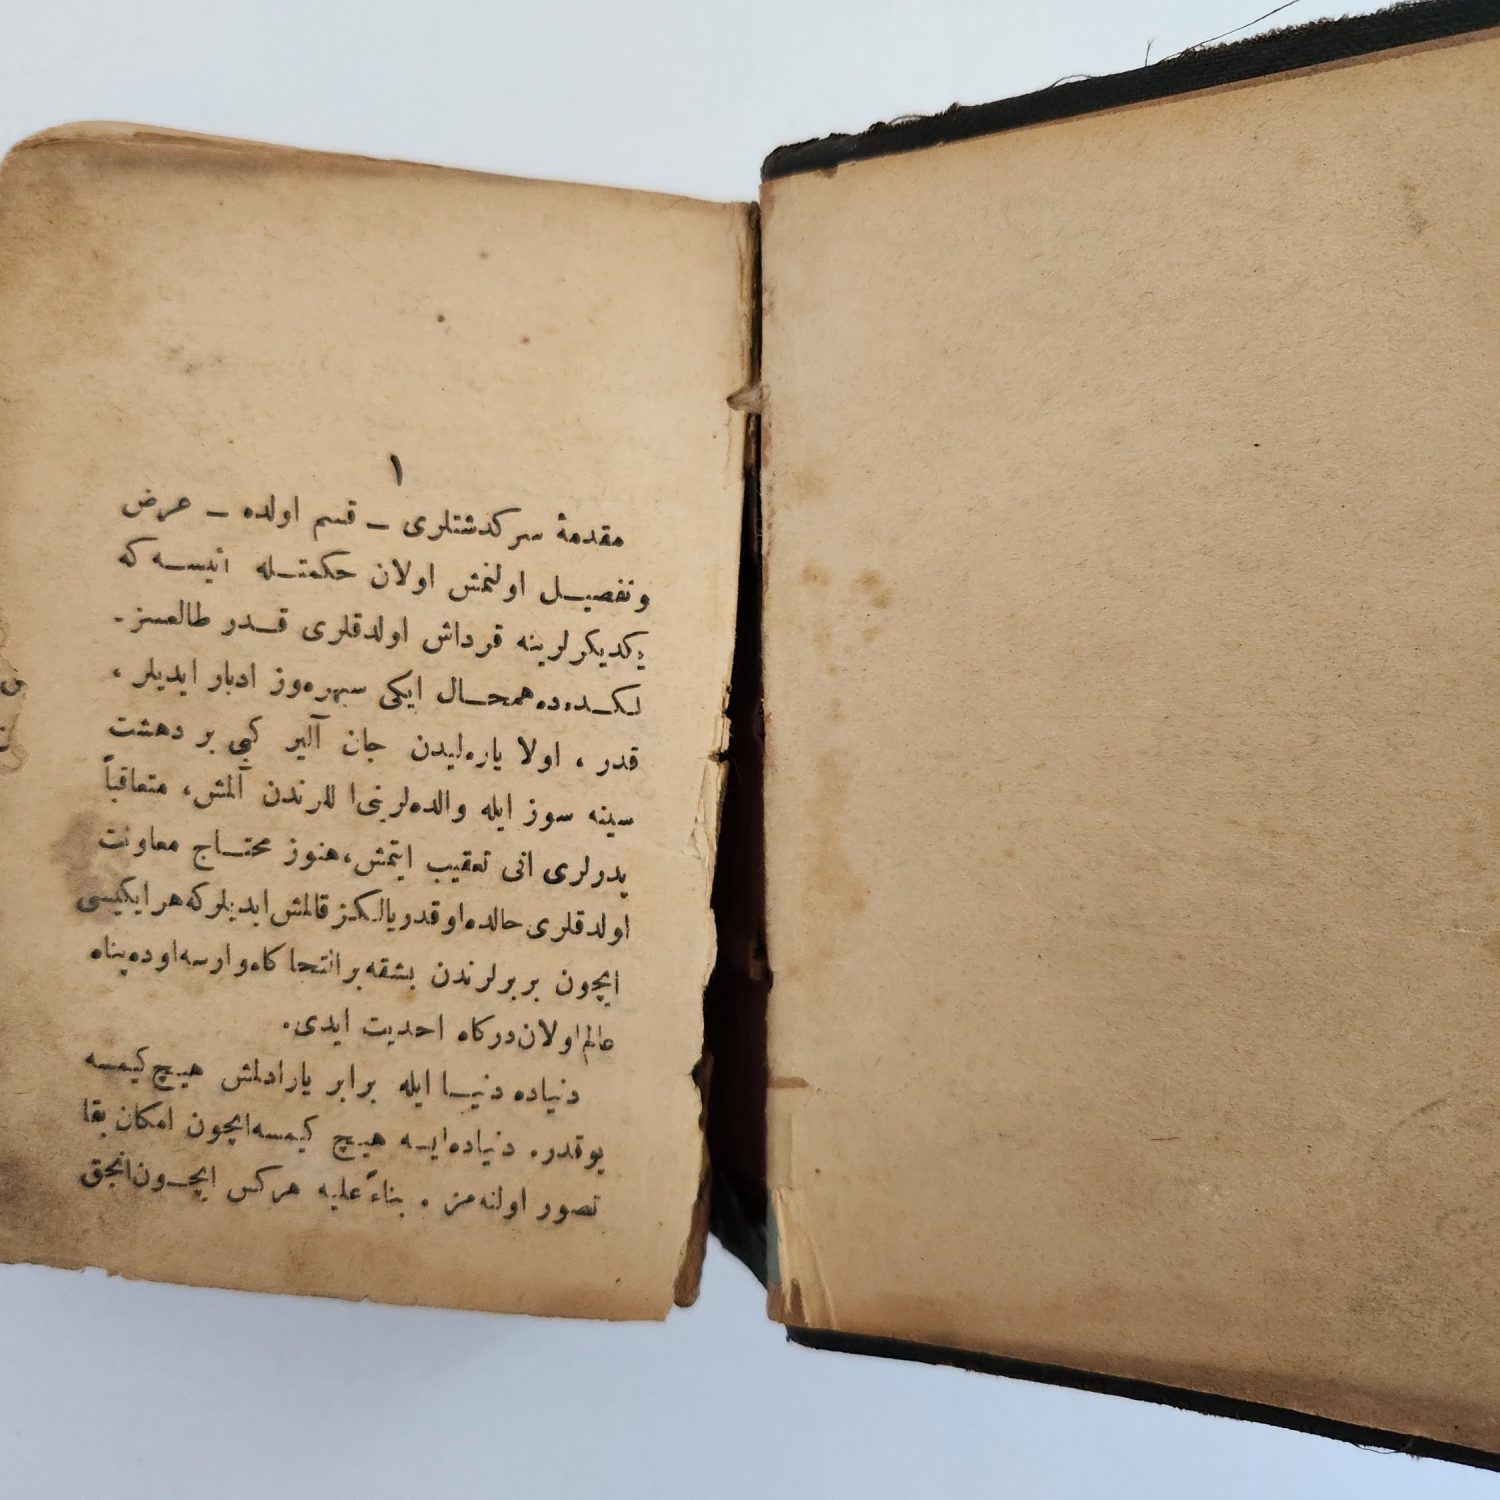 ١
مقدمهٔ سركذشتلرى ـ قسم اولده ـ عرض
وتفصيل اولنمش اولان حكمتله انيسه كه
يكديكرلرينه قرداش اولدقلرى قدر طالعسز ـ
لكده ده همحال ايكى سهره‌وز ادبار ايديلر ،
قدر ، اولا ياره‌ليدن جان آلير كبى بر دهشت
سينه سوز ايله والده‌لرينى اللرندن آلمش، متعاقباً
پدرلرى انى تعقيب ايتمش، هنوز محتاج معاونت
اولدقلرى حالده اوقدر يالكز قالمش ايديلر كه هر ايكيسى
ايچون بربرلرندن بشقه بر التجاكاه وارسه اوده پناه
عالم اولان دركاه احديت ايدى.
دنياده دنيا ايله برابر يارادلمش هيچ كيمسه
يوقدر. دنياده ايسه هيچ كيمسه ايچون امكان بقا
تصور اولنه‌مز . بناءً عليه هركس ايچون انجق